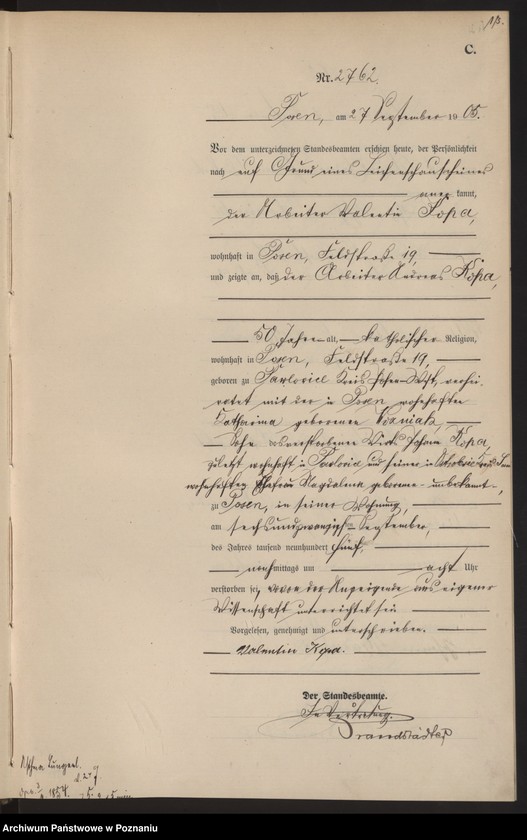 C.
Nr. 2762.
Posen, am 27 September 1905.
Vor dem unterzeichneten Standesbeamten erschien heute, der Persönlichkeit
nach auf Grund eines Leichenschauscheines
aner kannt,
der Arbeiter Valentin Kopa,
wohnhaft in Posen, Feldstraße 19,
und zeigte an, daß der Arbeiter Andreas Kopa,
50 Jahre alt, katholischer Religion,
wohnhaft in Posen, Feldstraße 19,
geboren zu Pawlowice Kreis Posen-West, verhei-
ratet mit der in Posen wohnhaften
Katharina geborenen Wozniak,
Sohn des verstorbenen Wirts Johann Kopa,
zuletzt wohnhaft in und seiner in
wohnhaften Ehefrau Magdalena geborene unbekannt,
zu Posen, in seiner Wohnung,
am sechsundzwanzigsten September,
des Jahres tausend neunhundert fünf,
nachmittags um acht Uhr
verstorben sei, wovon der Anzeigende aus eigener
Wissenschaft unterrichtet sei
Vorgelesen, genehmigt und unterschrieben.
Valentin Kopa.
Der Standesbeamte.
In Vertretung.
Brandstädter
Archiwum Państwowe w Poznaniu